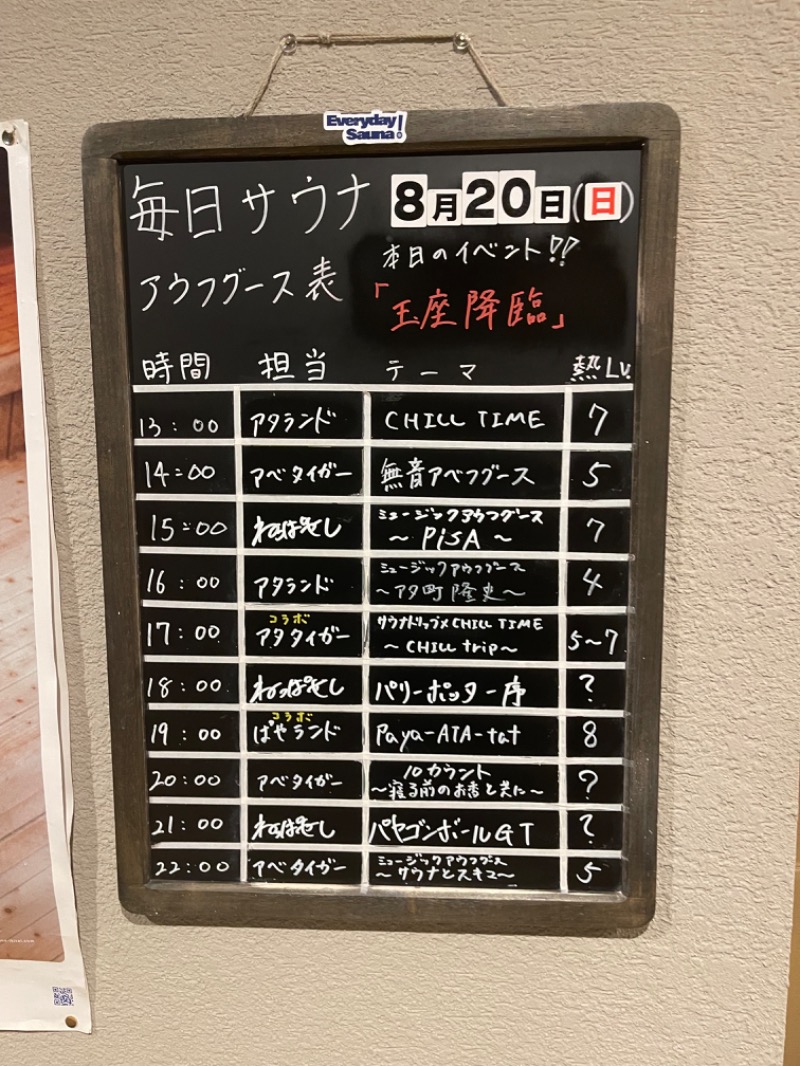 Everyday
Sauna!
毎日サウナ 8月20日(日)
アウフグース表 本日のイベント!!
「玉座降臨」
時間 担当 テーマ 熱Lv.
13:00 アタランド CHILL TIME 7
14:00 アベタイガー 無音アベフグース 5
15:00 ミュージックアウフグース 7
～PISA～
16:00 アタランド ミュージックアウフグース 4
～アタ町隆史～
コラボ
17:00 アタタイガー サウナドリップ×CHILL TIME 5～7
～CHILL trip～
18:00 パリーポッター序 ?
コラボ
19:00 ぱやランド Paya-ATA-tat 8
20:00 アベタイガー 10カウント ?
～寝る前のお香と共に～
21:00 パヤゴンボールGT ?
22:00 アベタイガー ミュージックアウフグース 5
～サウナとスキコ～